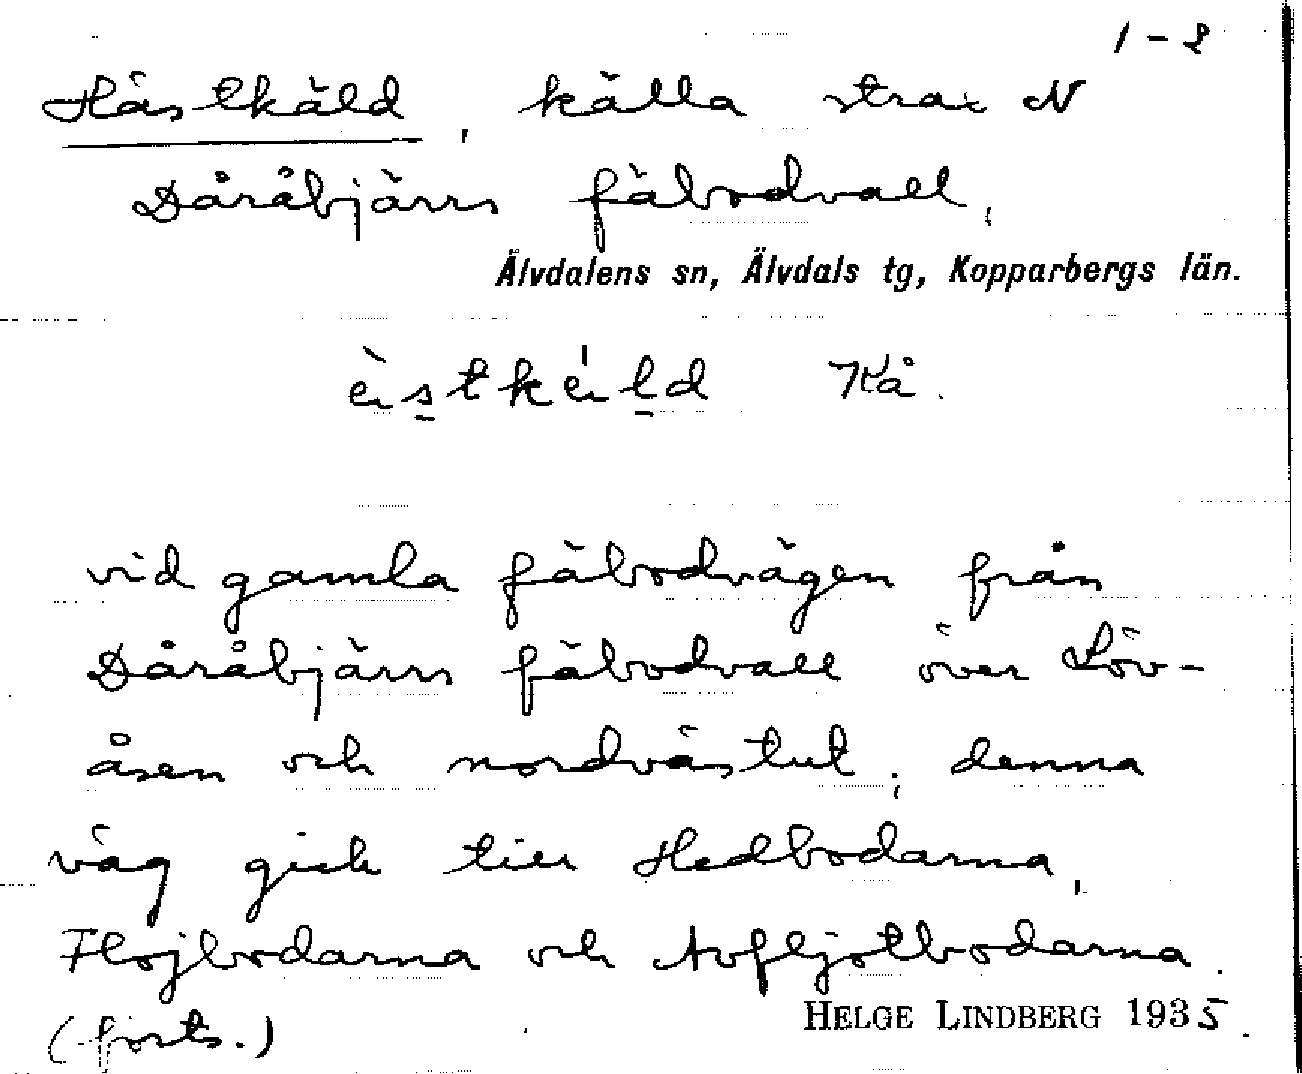 1-2
Hästkäld, källa strax N
Dåråbjärrs fäbodvall,
Älvdalens sn, Älvdals tg, Kopparbergs län.
Kå.
vid gamla fäbodvägen från
Dåråbjärrs fäbodvall över Löv-
åsen och nordvästut; denna
väg gick till Hedbodarna,
Flöjbodarna och
(forts.)
HELGE LINDBERG 1935.